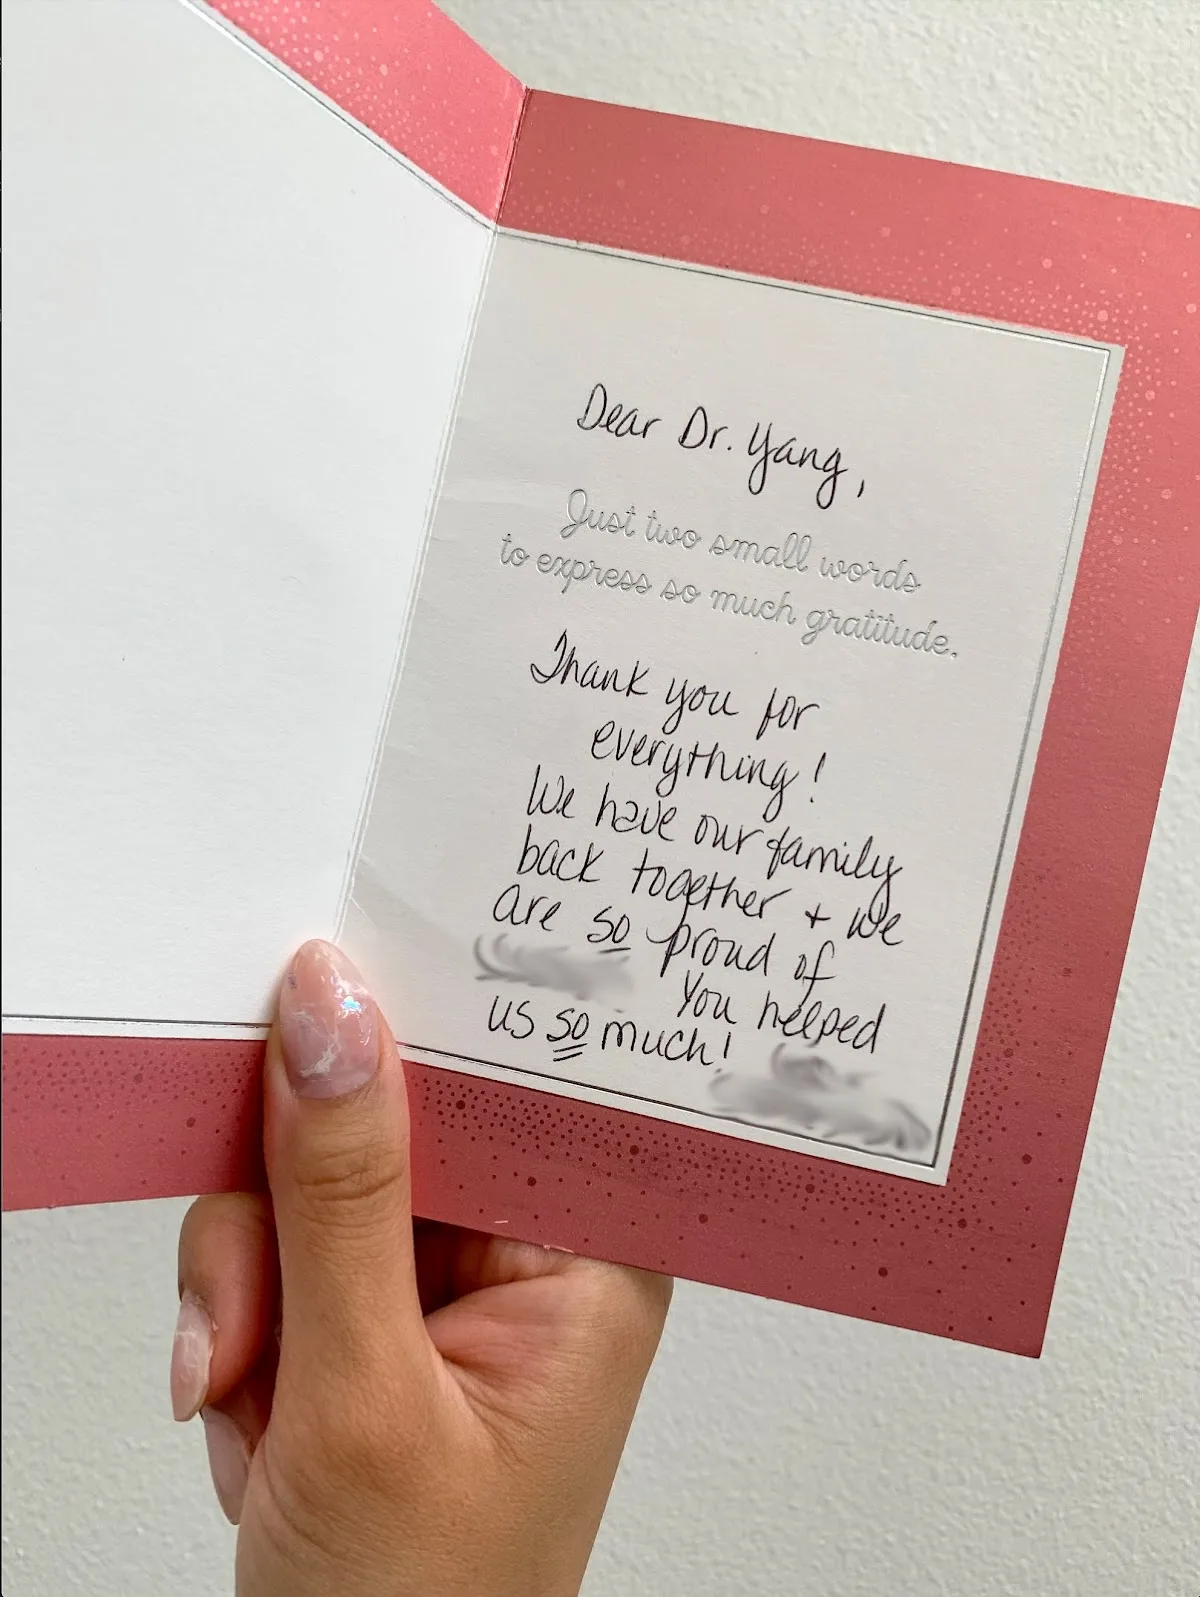 Dear Dr. Yang,
Just two small words
to express so much gratitude.
Thank you for
everything!
We have our family
back together + we
are so proud of
You helped
us so much!